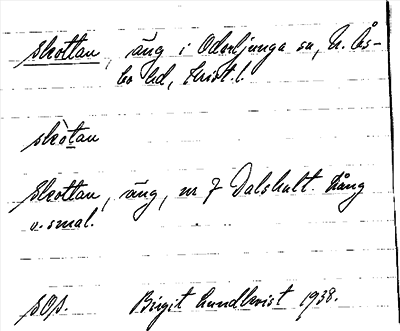 Skottan, äng i Oderljunga sn, N. Ås-
bo hd, Krist. l.
skòtan
Skottan, äng, nr 7 Dalshult. Lång
o. smal.
Birgit Lundkvist 1938.